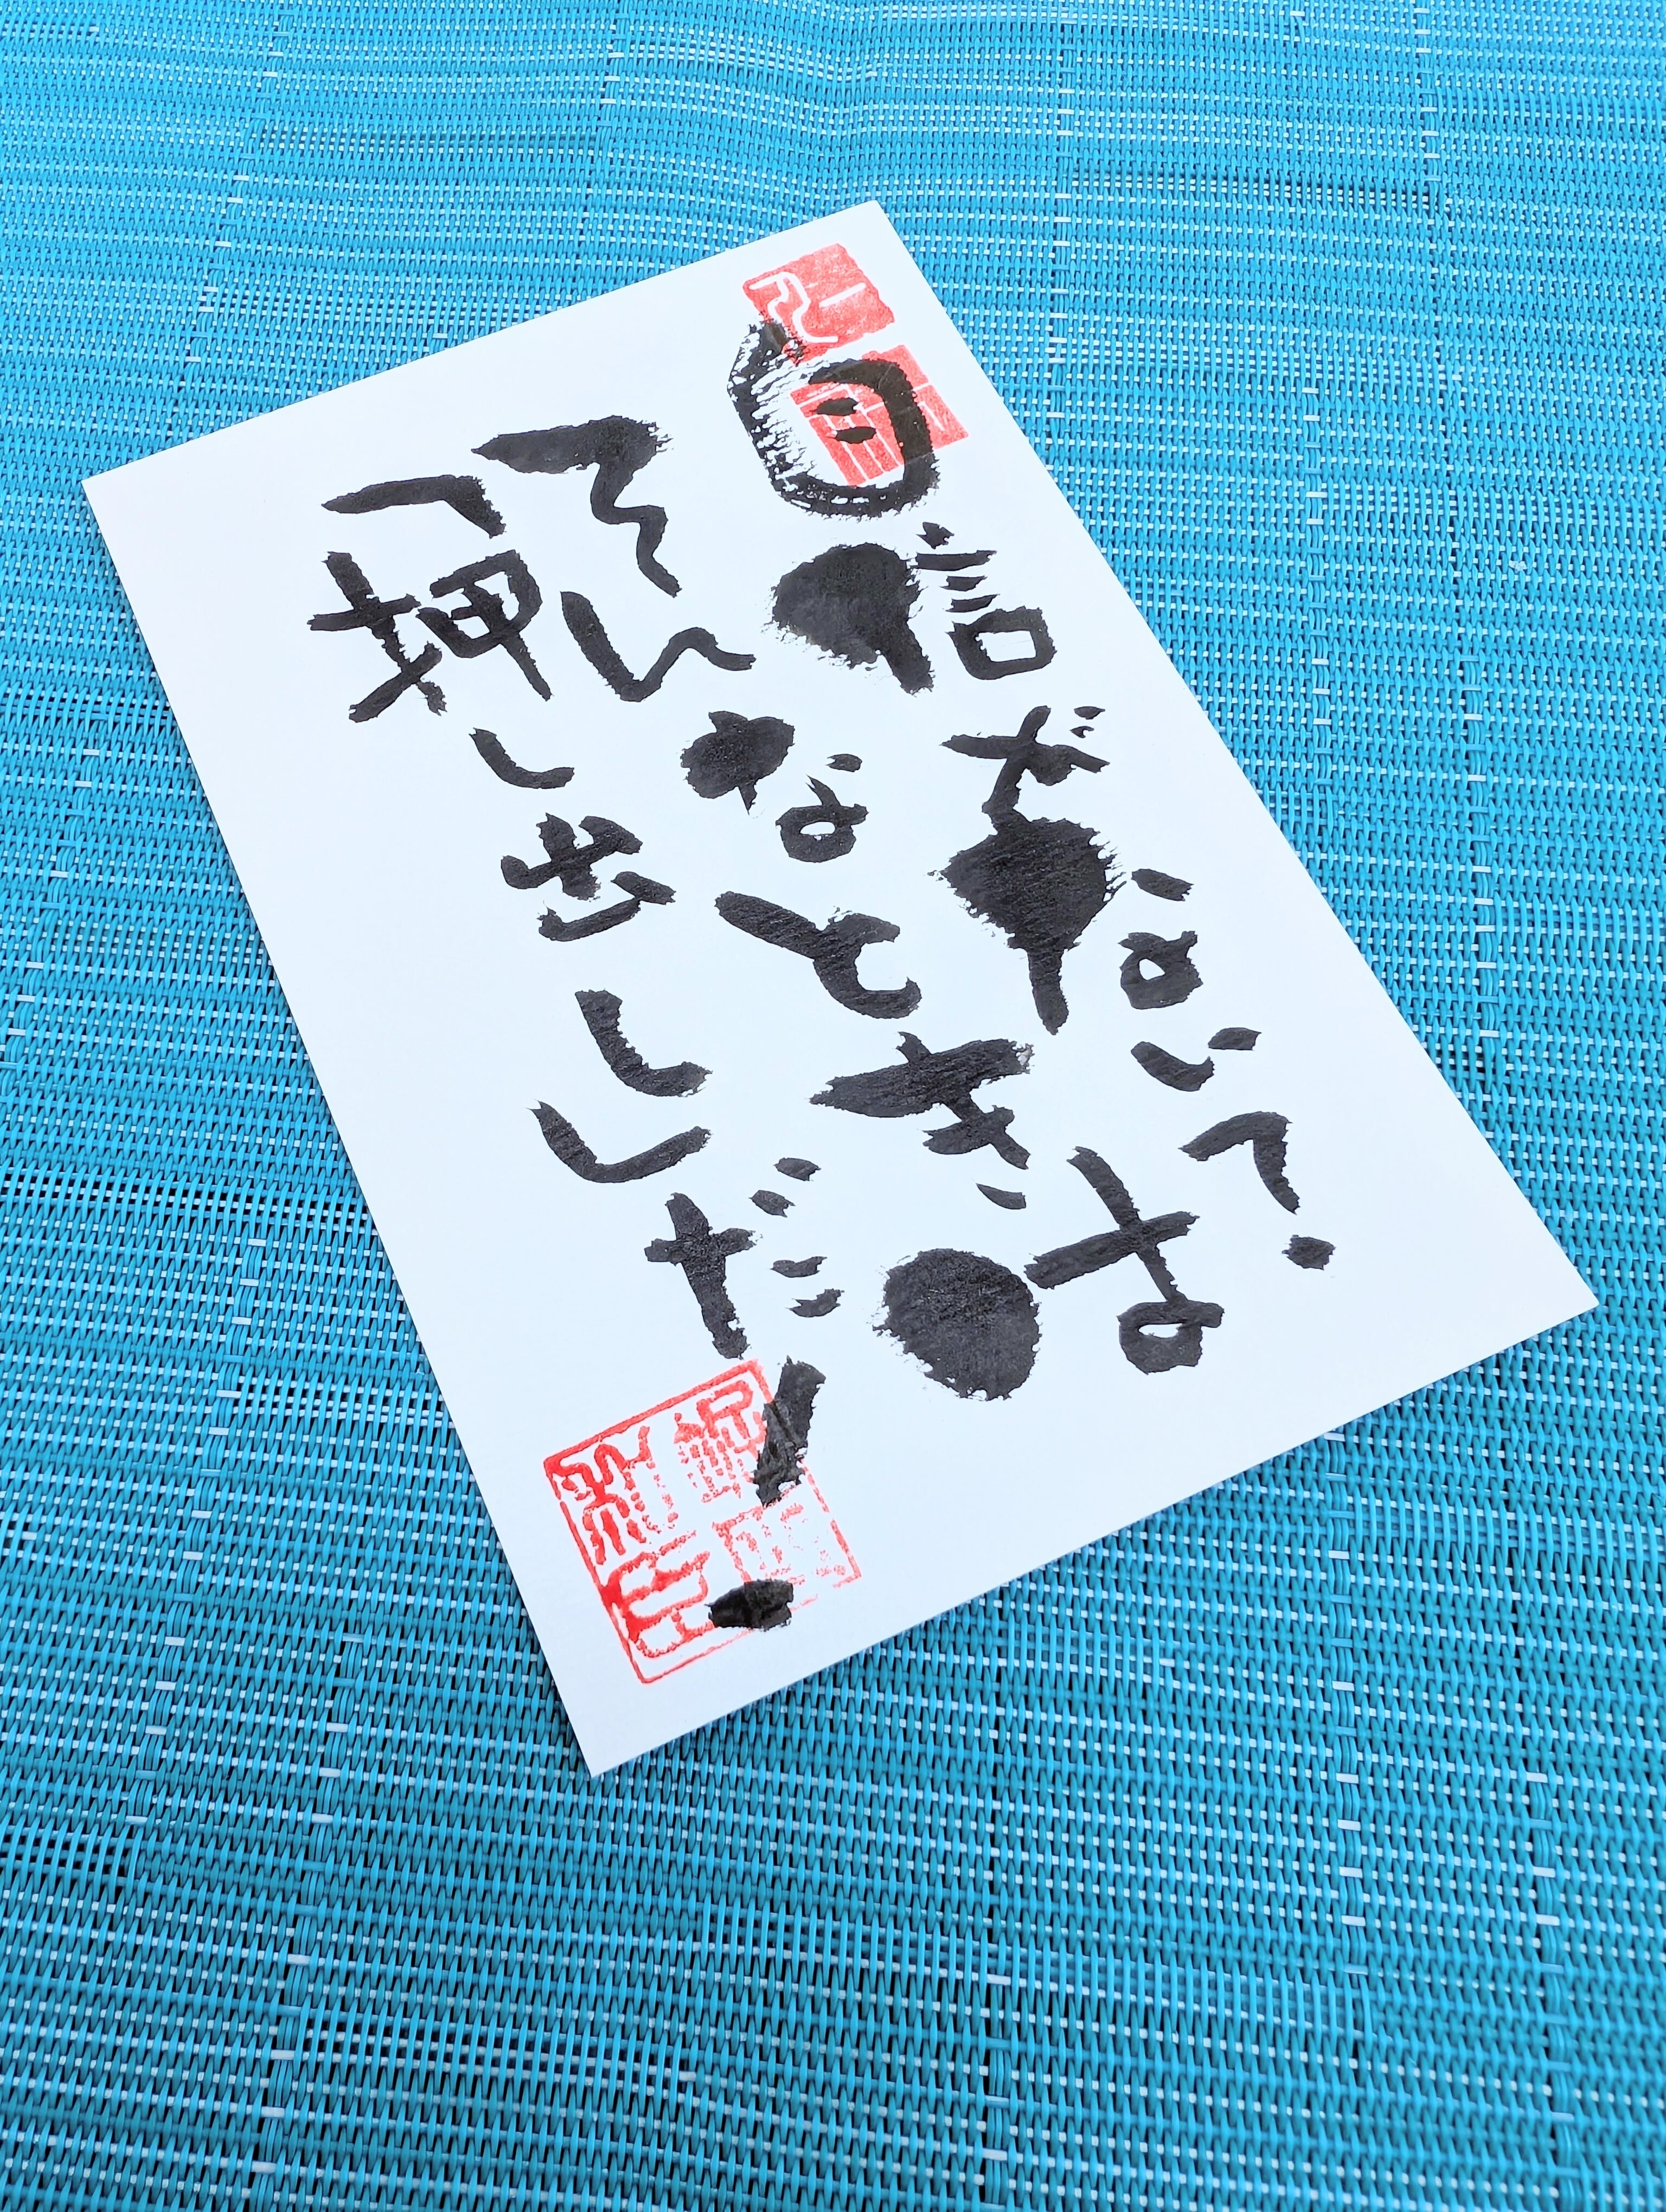 自信がない?
そんなときは
「押し出し」だ!